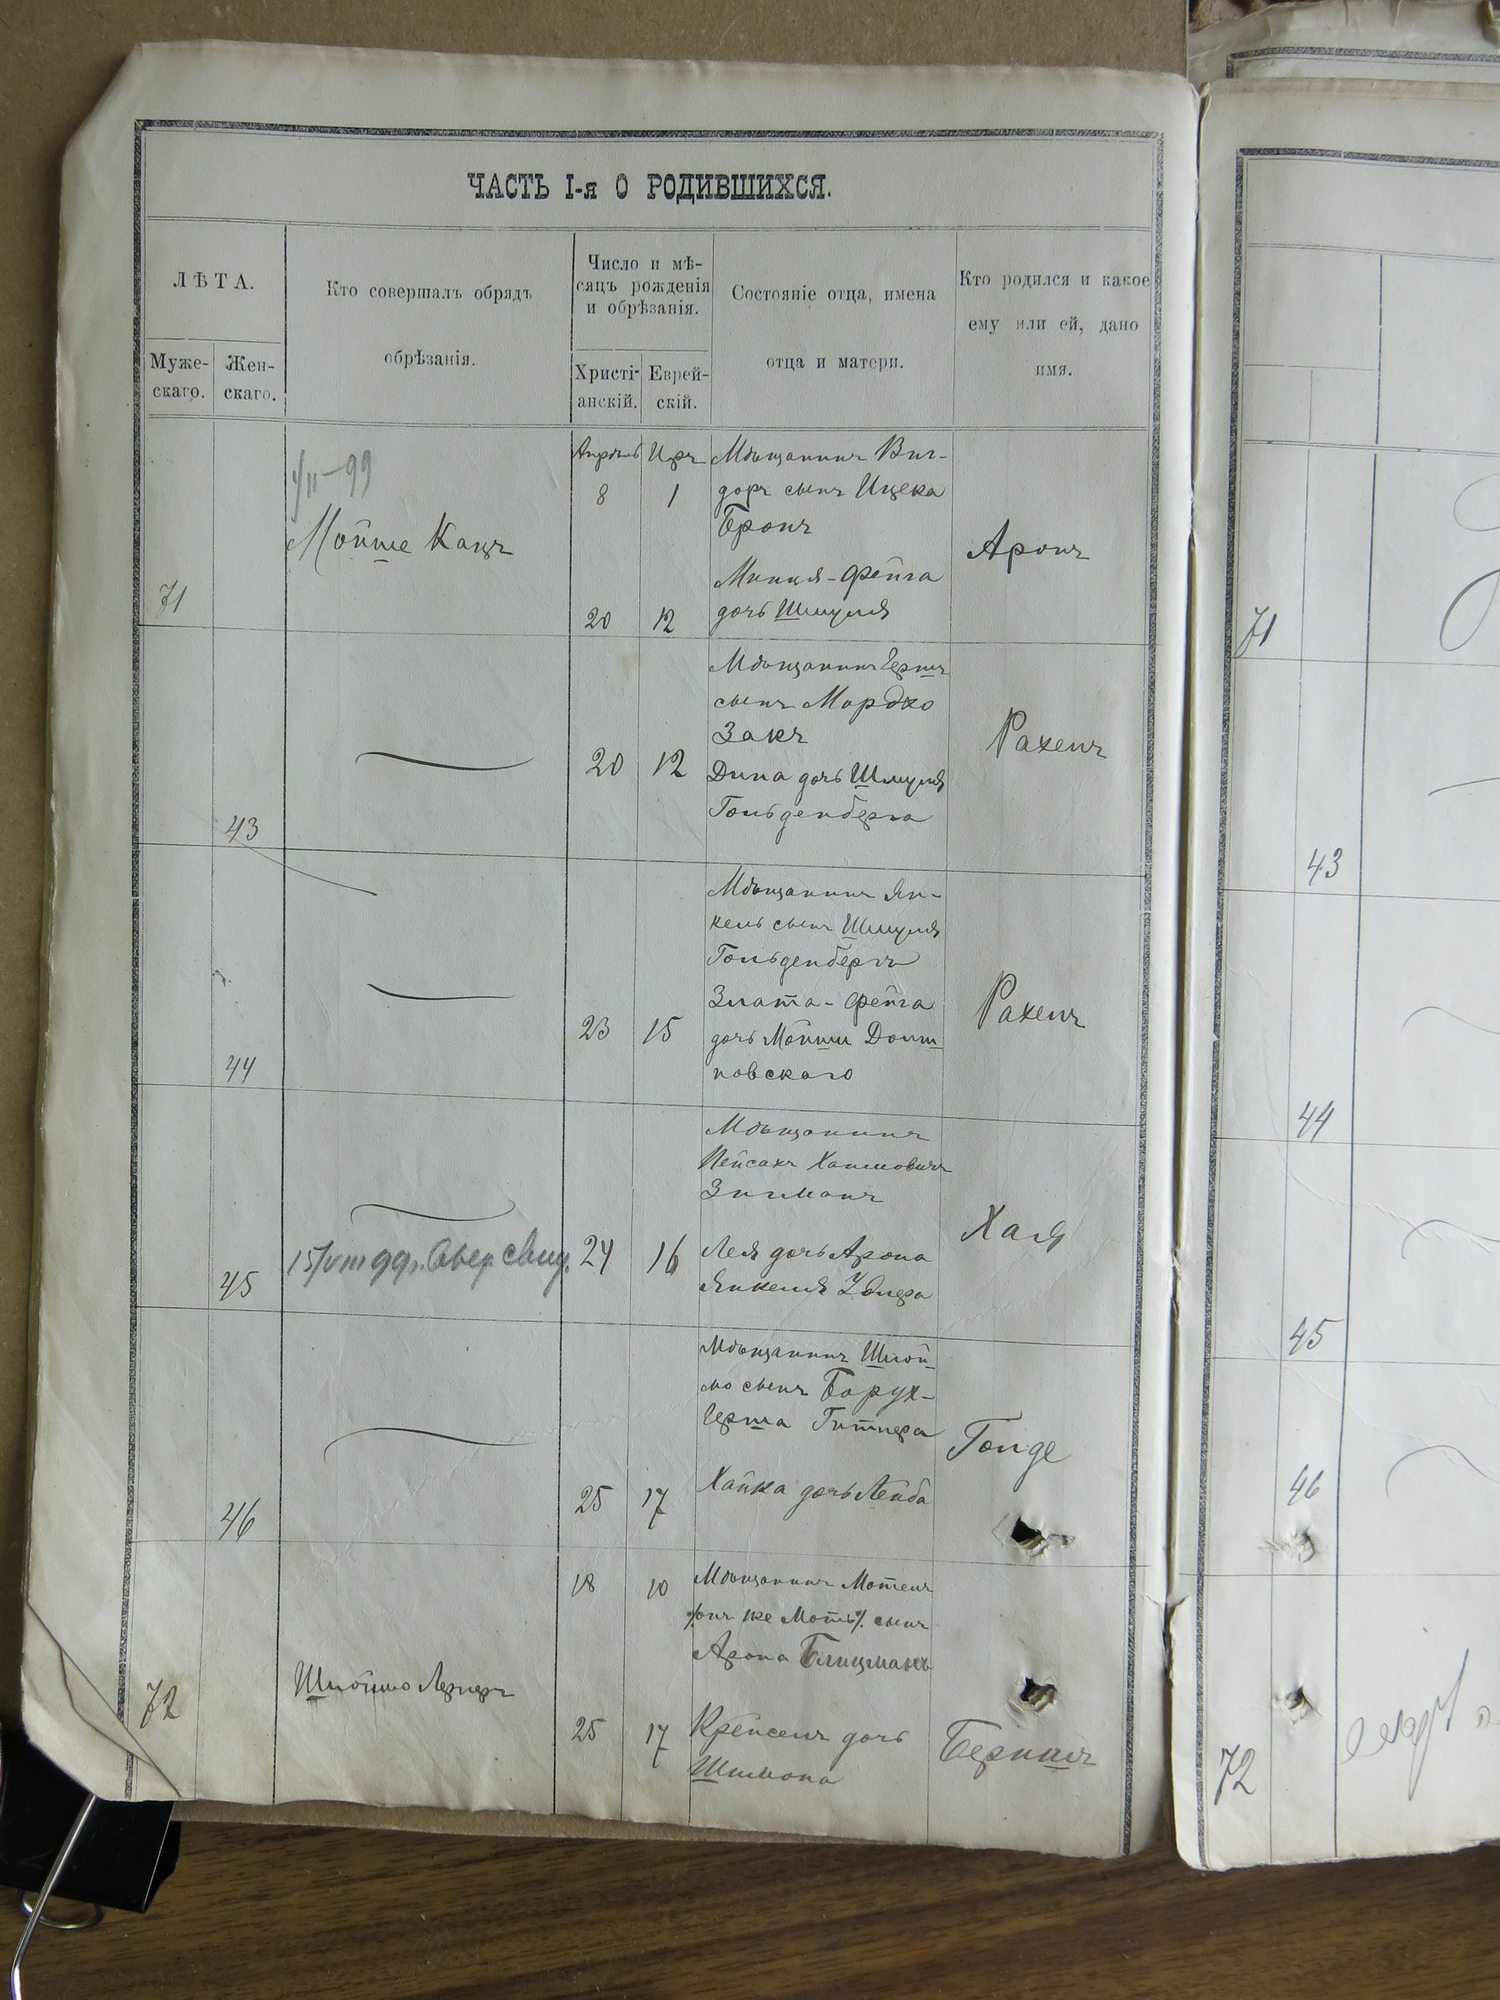 ЧАСТЬ I-я О РОДИВШИХСЯ.
ЛѢТА.
Муже-
скаго.
Жен-
скаго.
Кто совершалъ обрядъ
обрѣзанія.
Число и мѣ-
сяцъ рожденія
и обрѣзанія.
Христі-
анскій.
Еврей-
скій.
Состояніе отца, имена
отца и матери.
Кто родился и какое
ему или ей, дано
имя.
71
99
Мойше Кацъ
Апрѣль Іиръ
8 1
20 12
Мѣщанинъ Виг-
доръ сынъ Ицека
Бронъ
Минця-Фейга
дочь Шмуля
Аронъ
43
20 12
Мѣщанинъ Гершъ
сынъ Мордхо
Закъ
Дина дочь Шмуля
Гольденберга
Рахель
44
23 15
Мѣщанинъ Ян-
кель сынъ Шмуля
Гольденбергъ
Злата-Фейга
дочь Мойши
новскаго
Рахель
45
15/VIII 99г.
24 16
Мѣщанинъ
Пейсахъ Хаимовичъ
Зигманъ
Лея дочь Арона
Янкеля
Хая
46
25 17
Мѣщанинъ Шлой-
мо сынъ Борух-
Герша
Хайка дочь Лейба
Голде
72
Шлоймо Лернеръ
18 10
25 17
Мѣщанинъ Мотель
онъ же Моть сынъ
Арона Блицманъ
Крейсель дочь
Шимона
71
43
44
45
46
72